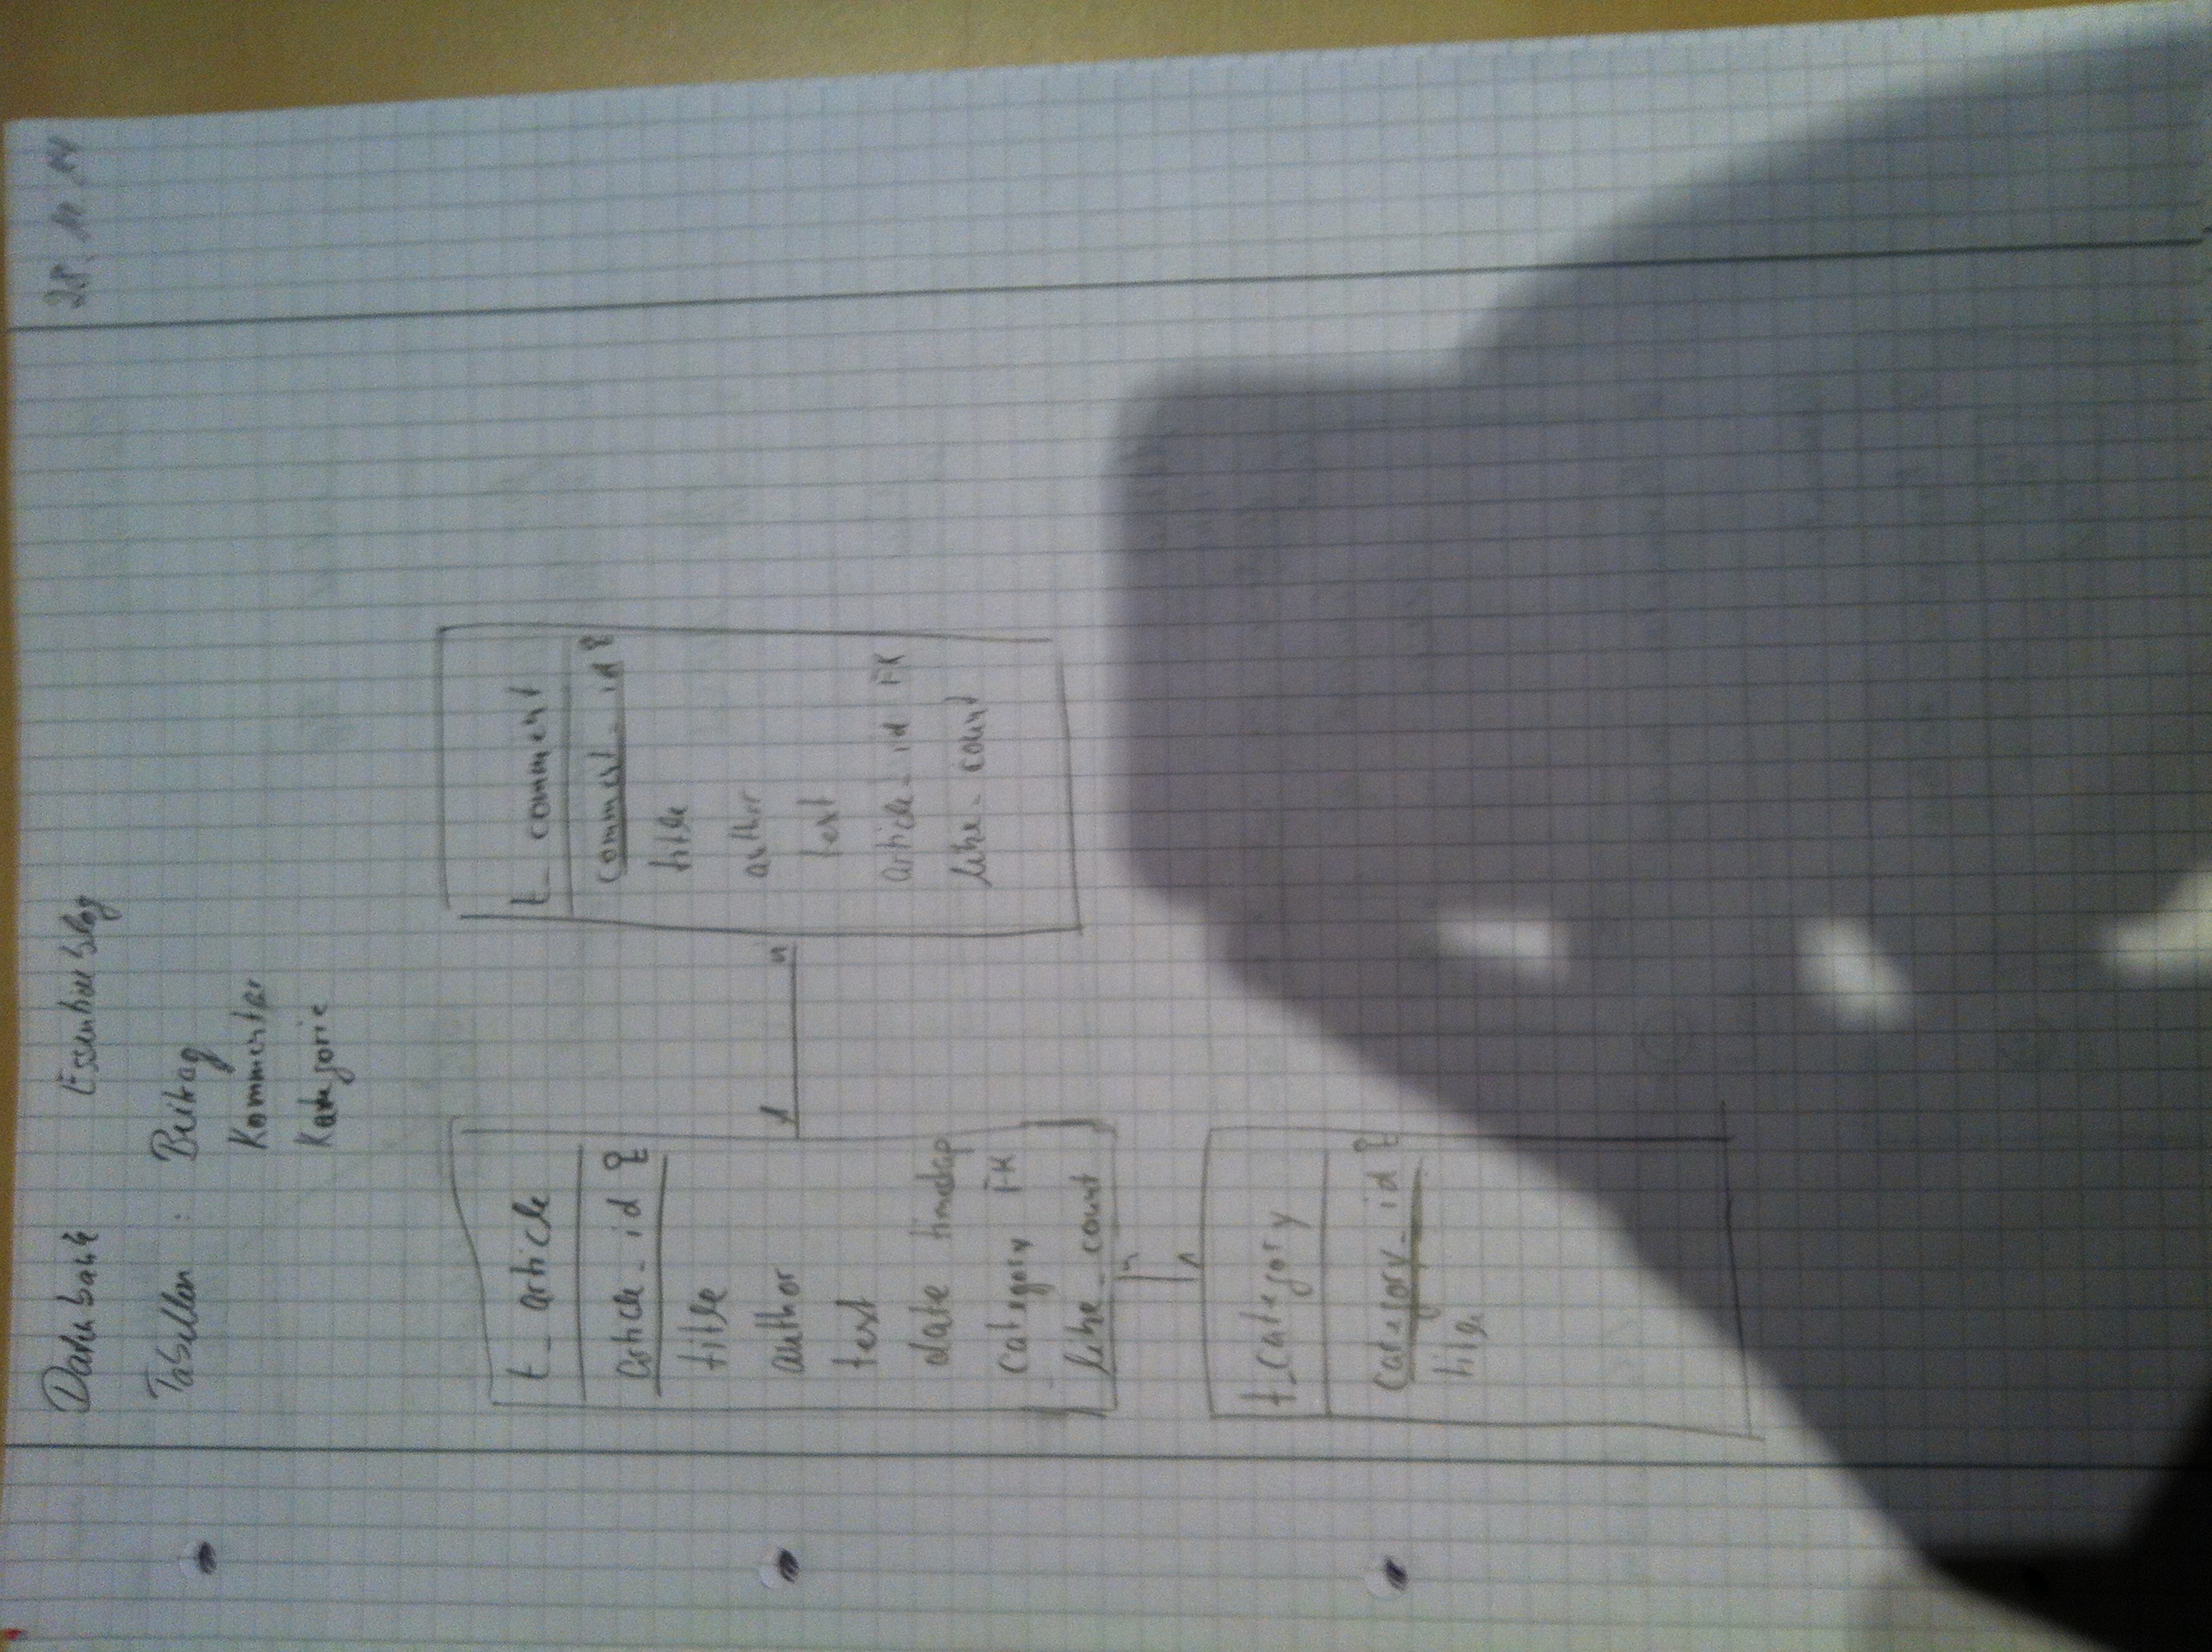 Datenbank Essential blog 28.11.14
Tabellen : Beitrag
Kommentar
Kategorie
t_ article
article_id
title
author
text
date timestap
category FK
like_count
1 n
t_ comment
comment_id
title
author
text
article_id FK
like_count
n
1
t_category
category_id
title